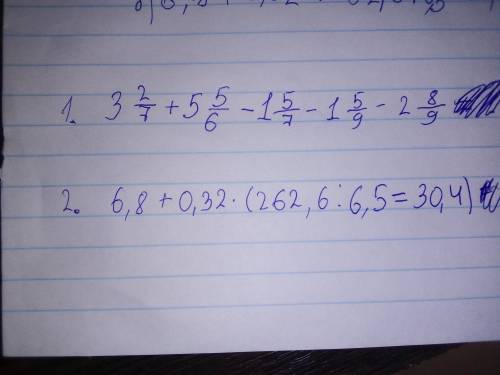 1. 3 2/7 + 5 5/6 - 1 5/7 - 1 5/9 - 2 8/9
2. 6,8 + 0,32 · (262,6 : 6,5 = 30,4)